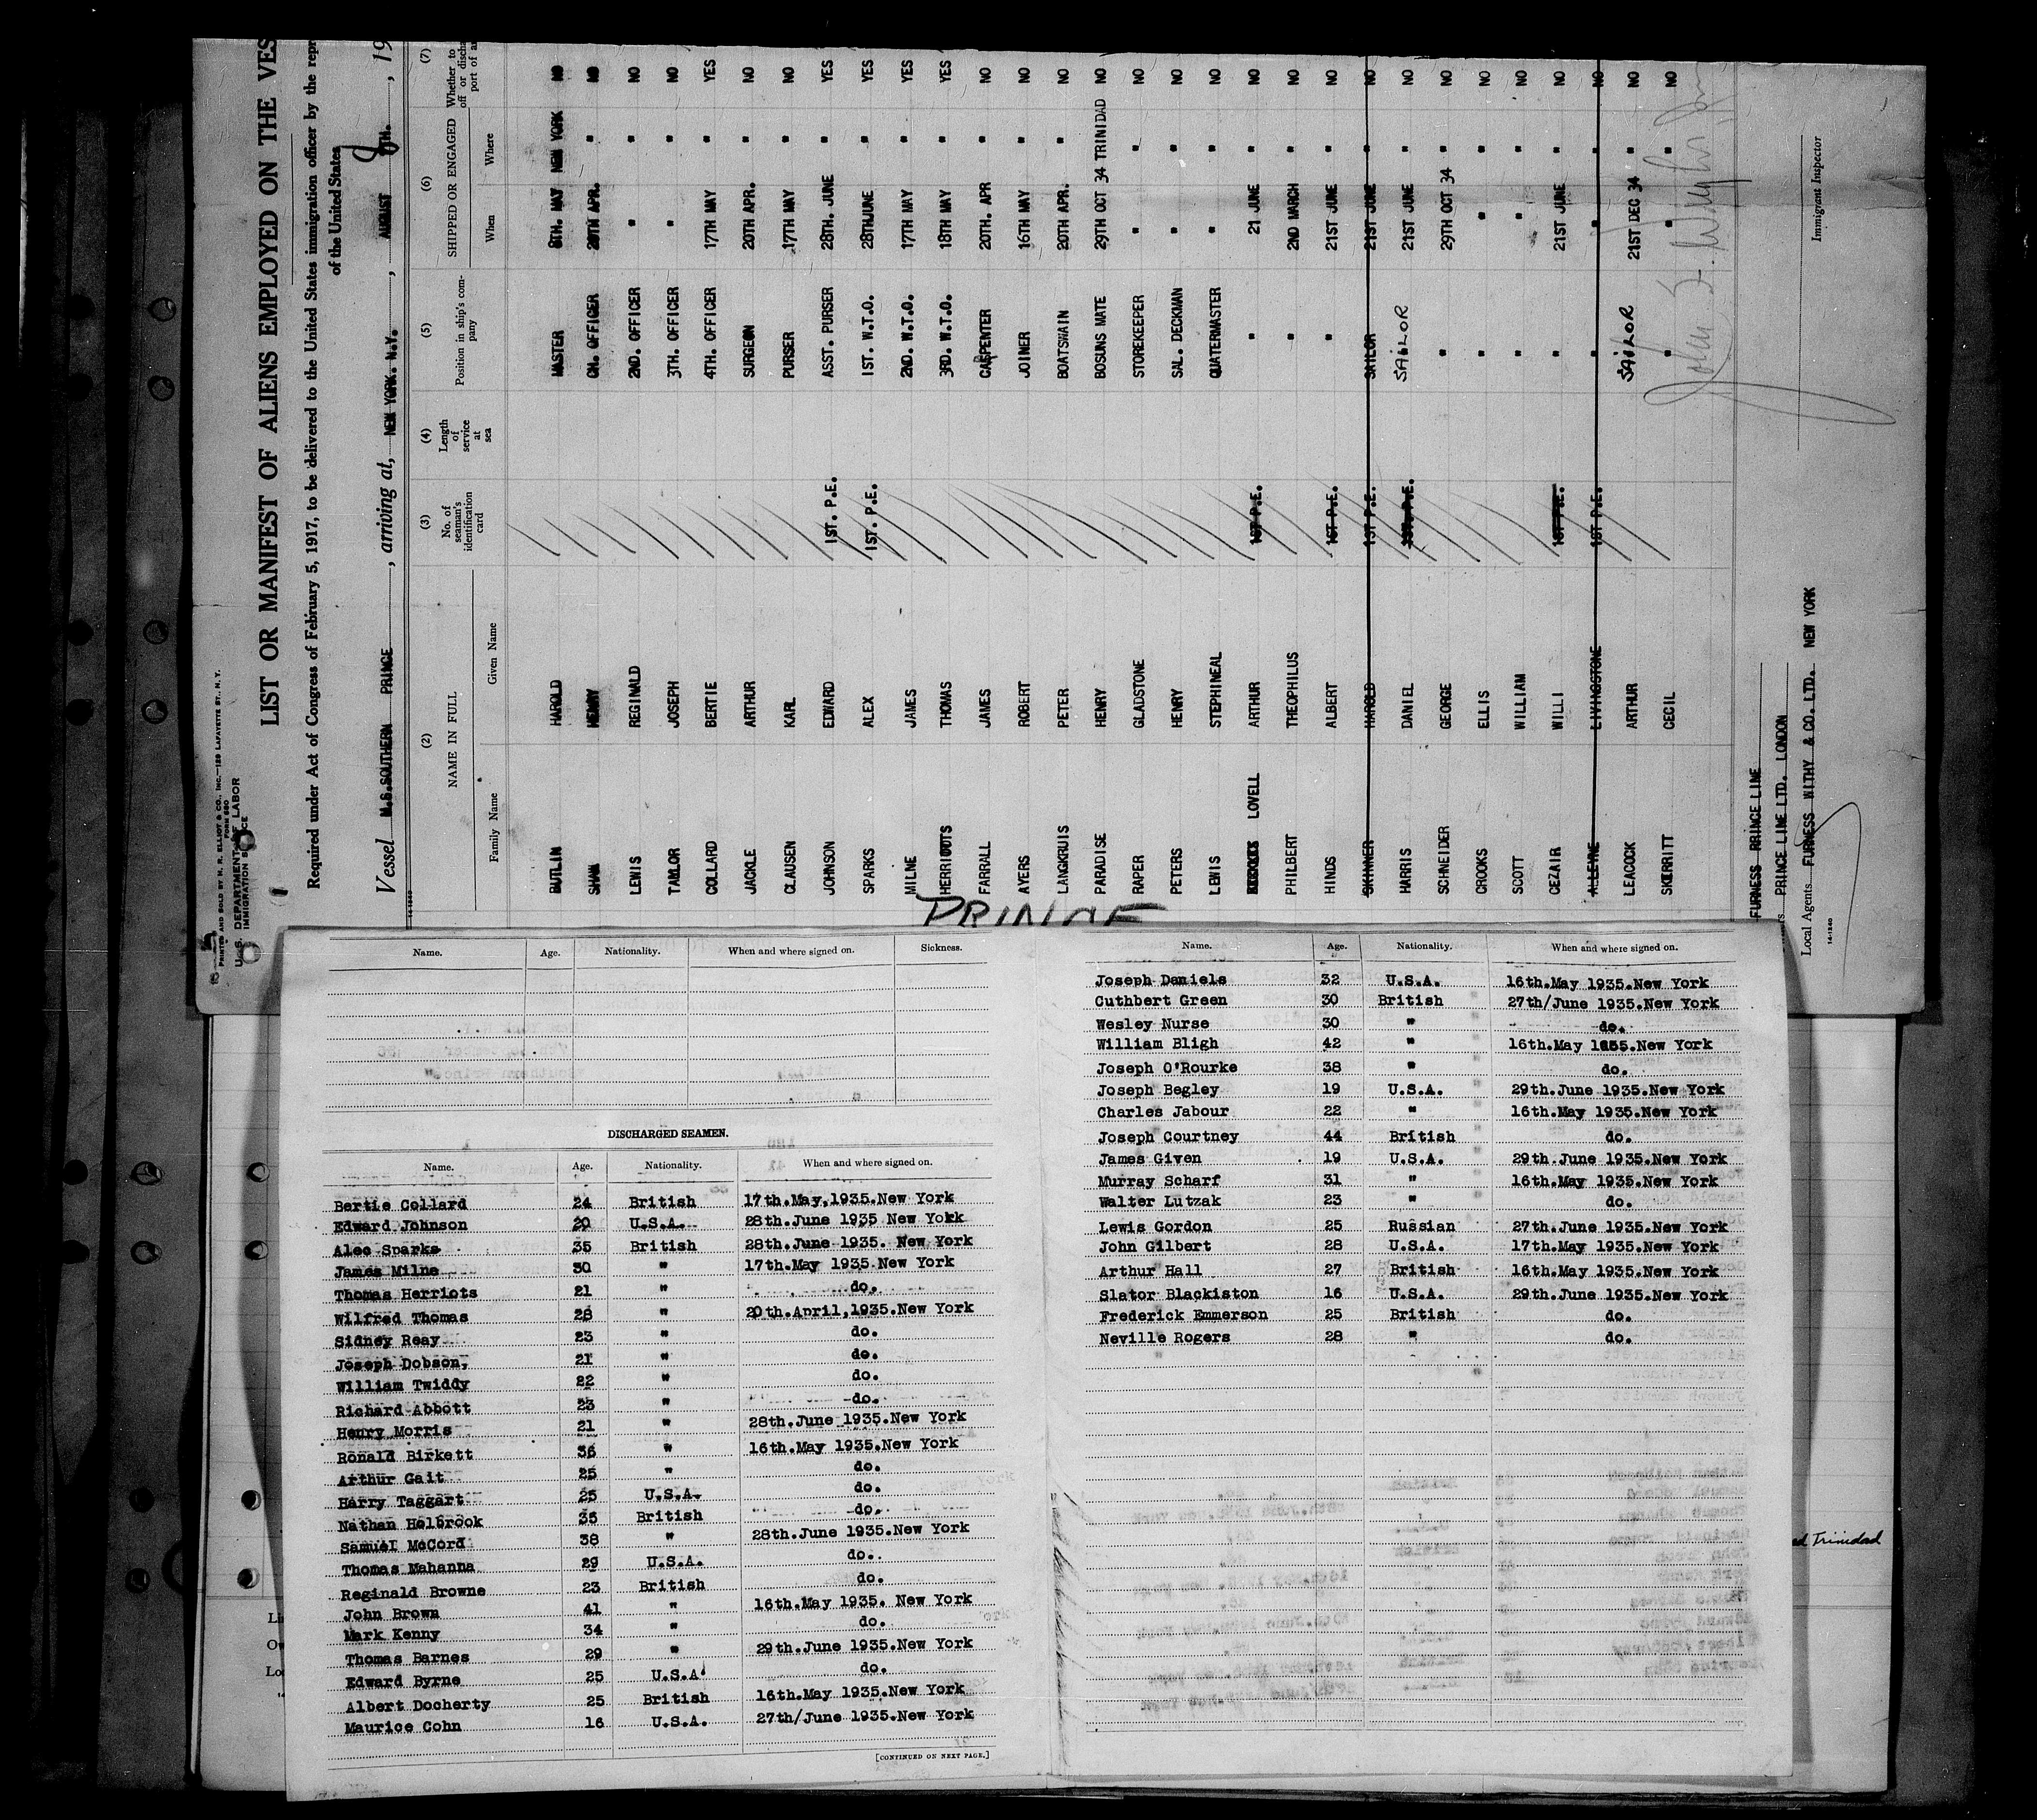 PRINTED AND SOLD BY H. R. ELLIOT & CO., INC.—129 LAFAYETTE ST., N. Y.
FORM 680
U. S. DEPARTMENT OF LABOR
IMMIGRATION SERVICE
LIST OR MANIFEST OF ALIENS EMPLOYED ON THE VES
Required under Act of Congress of February 5, 1917, to be delivered to the United States immigration officer by the repr
of the United States
Vessel M.S. SOUTHERN PRINCE, arriving at, NEW YORK. N.Y., AUGUST 8TH., 19
14-1240
(2) (3) (4) (5) (6) (7)
NAME IN FULL No. of seaman's identification card Length of service at sea Position in ship's company SHIPPED OR ENGAGED Whether to off or discha port of a
Family Name Given Name When Where
BUTLIN HAROLD MASTER 8TH. MAY NEW YORK NO
SHAW HENRY CH. OFFICER 20TH APR. " NO
LEWIS REGINALD 2ND. OFFICER " " NO
TAYLOR JOSEPH 3TH. OFFICER " " NO
COLLARD BERTIE 4TH. OFFICER 17TH MAY " YES
JACKLE ARTHUR SURGEON 20TH APR. " NO
CLAUSEN KARL PURSER 17TH MAY " NO
JOHNSON EDWARD 1ST. P.E. ASST. PURSER 28TH. JUNE " YES
SPARKS ALEX 1ST. P.E. 1ST. W.T.O. 28THJUNE " YES
MILNE JAMES 2ND. W.T.O. 17TH MAY " YES
HERRIOTS THOMAS 3RD. W.T.O. 18TH MAY " YES
FARRALL JAMES CARPENTER 20TH. APR " NO
AYERS ROBERT JOINER 16TH MAY " NO
LANGKRUIS PETER BOATSWAIN 20TH APR. " NO
PARADISE HENRY BOSUNS MATE 29TH OCT 34 TRINIDAD NO
RAPER GLADSTONE STOREKEEPER " " NO
PETERS HENRY SAL. DECKMAN " " NO
LEWIS STEPHINEAL QUATERMASTER " " NO
LOVELL ARTHUR 1ST P.E. " 21 JUNE " NO
PHILBERT THEOPHILUS " 2ND MARCH " NO
HINDS ALBERT 1ST P.E. " 21ST JUNE " NO
SKINNER HAROLD 1ST P.E. SAILOR 21ST JUNE " NO
HARRIS DANIEL 1ST. P.E. SAILOR 21ST JUNE " NO
SCHNEIDER GEORGE " 29TH OCT 34 " NO
CROOKS ELLIS " " " NO
SCOTT WILLIAM " " " NO
CEZAIR WILLI 1ST P.E. " 21ST JUNE " NO
ALLEYNE LIVINGSTONE 1ST P.E. " " " NO
LEACOCK ARTHUR SAILOR 21ST DEC 34 " NO
SKERRITT CECIL " " " NO
FURNESS RRINCE LINE
rs PRINCE LINE LTD. LONDON
Local Agents FURNESS WITHY & CO. LTD. NEW YORK
14-1240
Immigrant Inspector
PRINCE
Name. Age. Nationality. When and where signed on. Sickness.
DISCHARGED SEAMEN.
Name. Age. Nationality. When and where signed on.
Bertie Collard 24 British 17th.May,1935.New York
Edward Johnson 20 U.S.A. 28th.June 1935 New York
Alec Sparks 35 British 28th.June 1935. New York
James Milne 30 " 17th.May 1935.New York
Thomas Herriots 21 " do.
Wilfred Thomas 28 " 20th.April,1935.New York
Sidney Reay 23 " do.
Joseph Dobson, 21 " do.
William Twiddy 22 " do.
Richard Abbott 23 " do.
Henry Morris 21 " 28th.June 1935.New York
Ronald Birkett 36 " 16th.May 1935.New York
Arthur Gait 25 " do.
Harry Taggart 25 U.S.A. do.
Nathan Holbrook 35 British do.
Samuel McCord 38 " 28th.June 1935.New York
Thomas Mahanna 29 U.S.A. do.
Reginald Browne 23 British do.
John Brown 41 " 16th.May 1935. New York
Mark Kenny 34 " do.
Thomas Barnes 29 " 29th.June 1935.New York
Edward Byrne 25 U.S.A. do.
Albert Docherty 25 British 16th.May 1935.New York
Maurice Cohn 16 U.S.A. 27th/June 1935.New York
[CONTINUED ON NEXT PAGE.]
Name. Age. Nationality. When and where signed on.
Joseph Daniels 32 U.S.A. 16th.May 1935.New York
Cuthbert Green 30 British 27th/June 1935.New York
Wesley Nurse 30 " do.
William Bligh 42 " 16th.May 1935.New York
Joseph O'Rourke 38 " do.
Joseph Begley 19 U.S.A. 29th.June 1935.New York
Charles Jabour 22 " 16th.May 1935.New York
Joseph Courtney 44 British do.
James Given 19 U.S.A. 29th.June 1935.New York
Murray Scharf 31 " 16th.May 1935.New York
Walter Lutzak 23 " do.
Lewis Gordon 25 Russian 27th.June 1935.New York
John Gilbert 28 U.S.A. 17th.May 1935.New York
Arthur Hall 27 British 16th.May 1935.New York
Slator Blackiston 16 U.S.A. 29th.June 1935.New York
Frederick Emmerson 25 British do.
Neville Rogers 28 " do.
ed Trinidad
Li
Ow
Lo
14